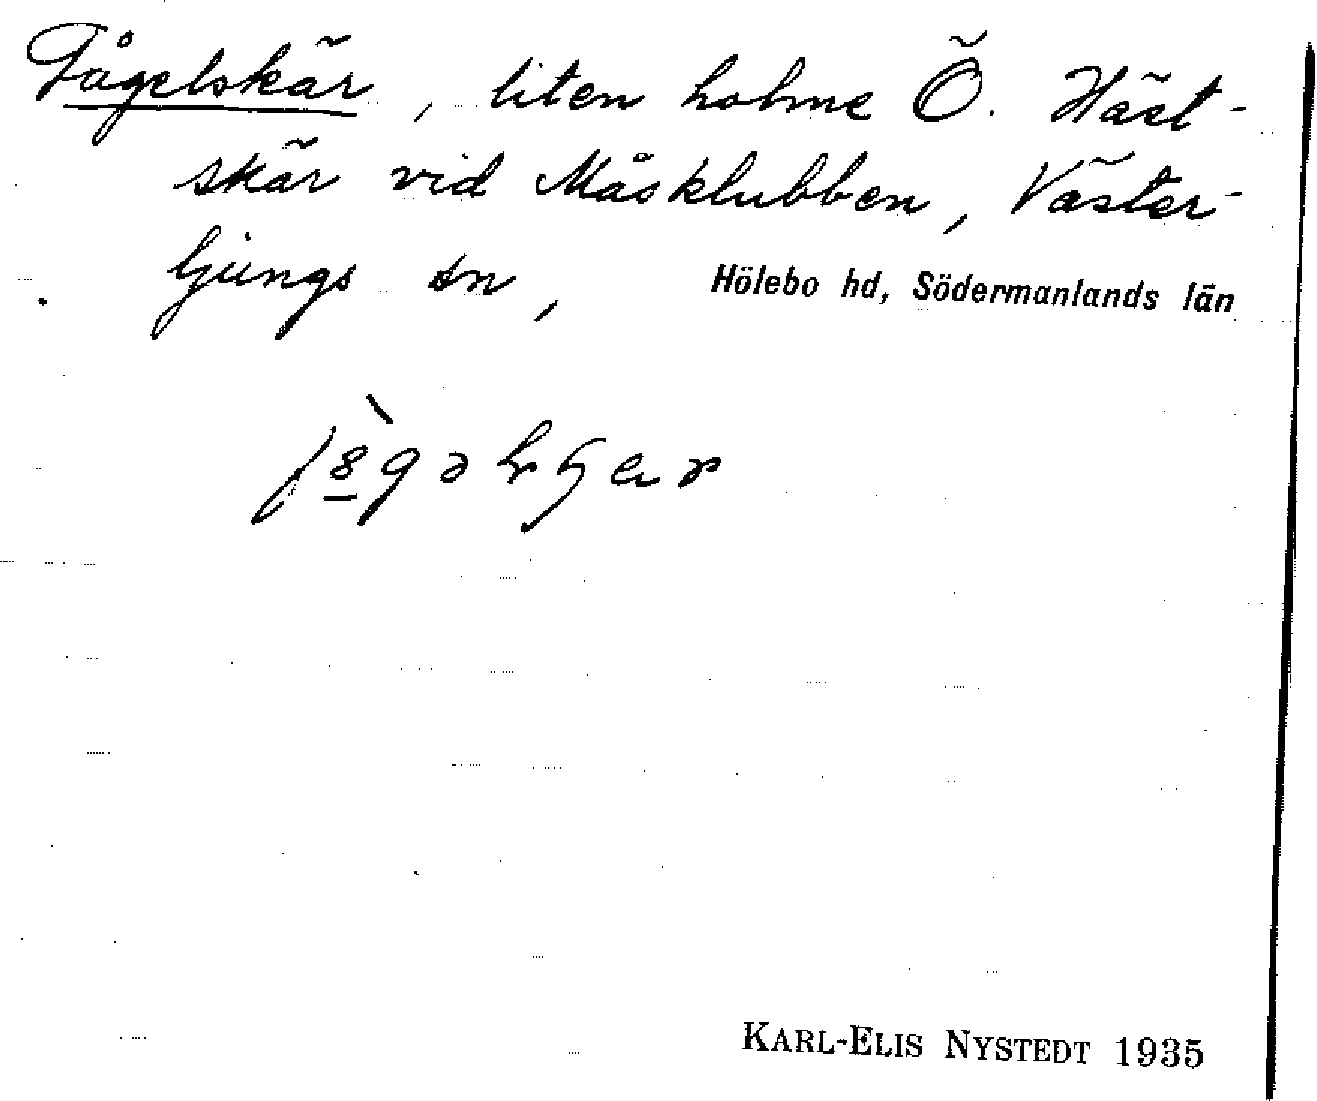 Fågelskär, liten holme Ö. Häst-
skär vid Måsklubben, Väster-
ljungs sn, Hölebo hd, Södermanlands län
KARL-ELIS NYSTEDT 1935